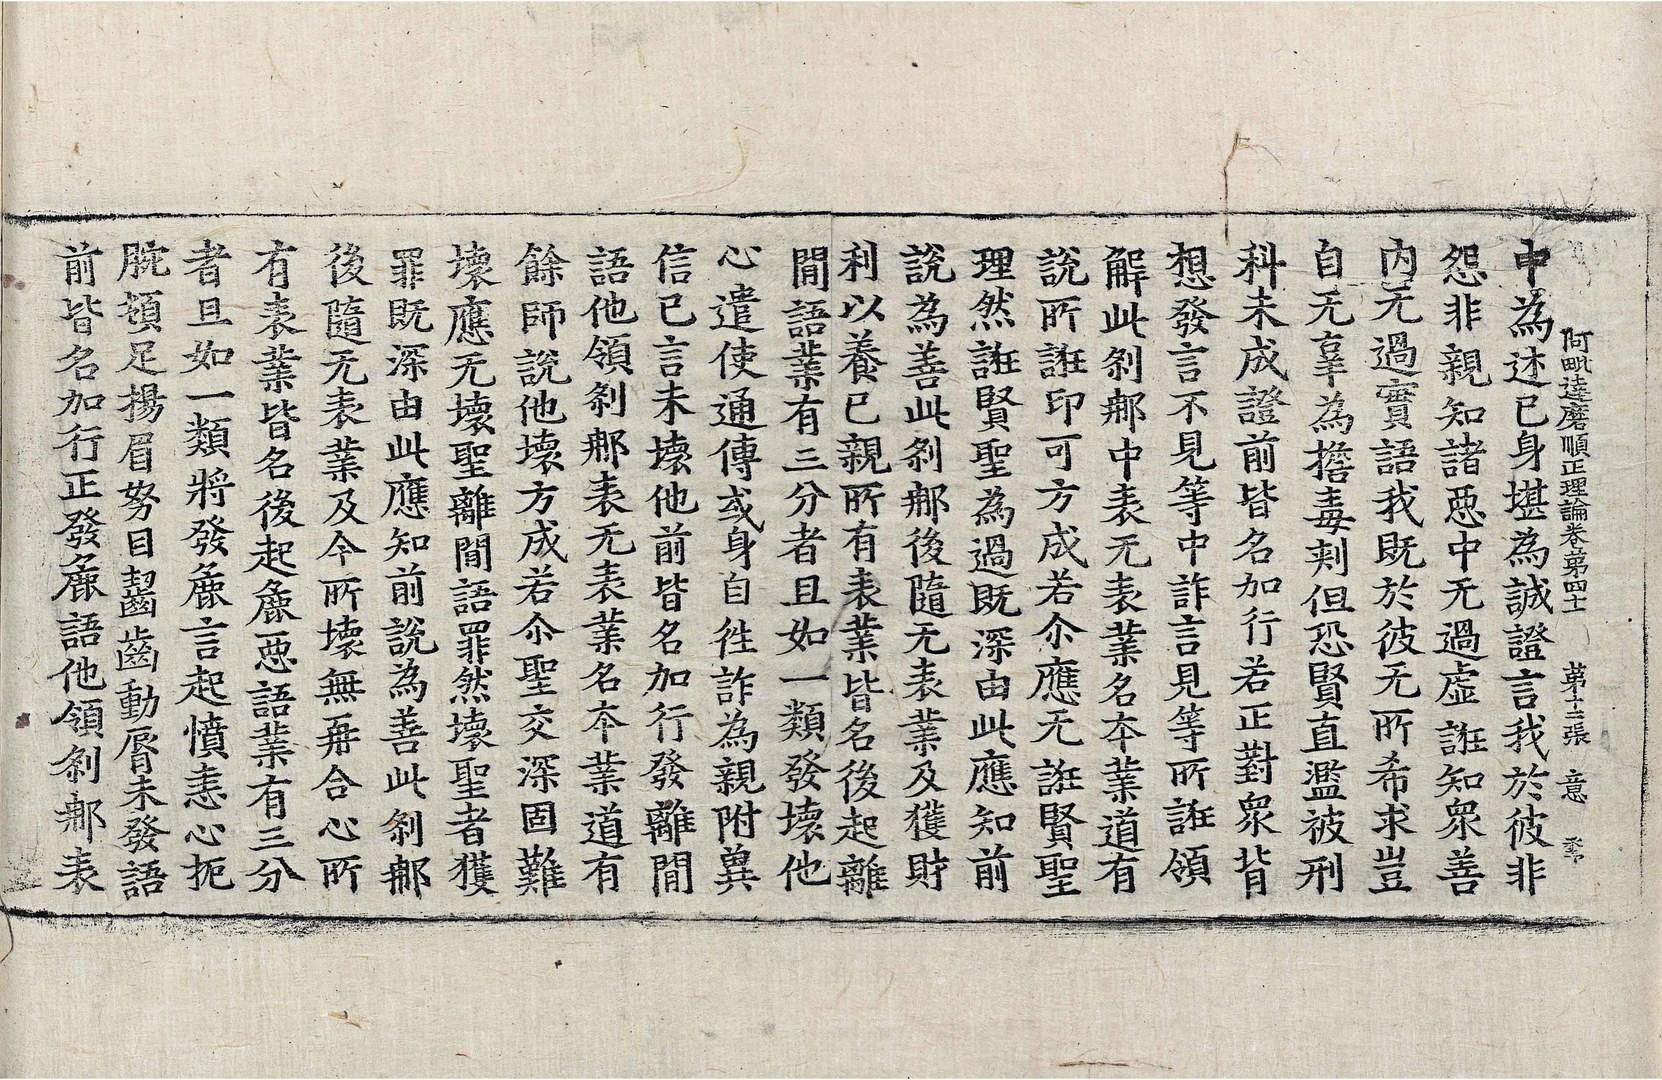 阿毗達磨順正理論卷第四十二 第十二張 意
中為述己身堪為誠證言我於彼非
怨非親知諸惡中无過虛誑知眾善
內无過實語我既於彼无所希求豈
自无辜為擔毒刺但恐賢直濫被刑
科未成證前皆名加行若正對眾背
想發言不見等中詐言見等所誑領
解此剎那中表无表業名本業道有
說所誑印可方成若尒應无誑賢聖
理然誑賢聖為過既深由此應知前
說為善此剎那後隨无表業及獲財
利以養己親所有表業皆名後起離
間語業有三分者且如一類發壞他
心遣使通傳或身自往詐為親附冀
信己言未壞他前皆名加行發離間
語他領剎那表无表業名本業道有
餘師說他壞方成若尒聖交深固難
壞應无壞聖離間語罪然壞聖者獲
罪既深由此應知前說為善此剎那
後隨无表業及今所壞無再合心所
有表業皆名後起麁惡語業有三分
者且如一類將發麁言起憤恚心扼
腕頓足揚眉努目齧齒動脣未發語
前皆名加行正發麁語他領剎那表